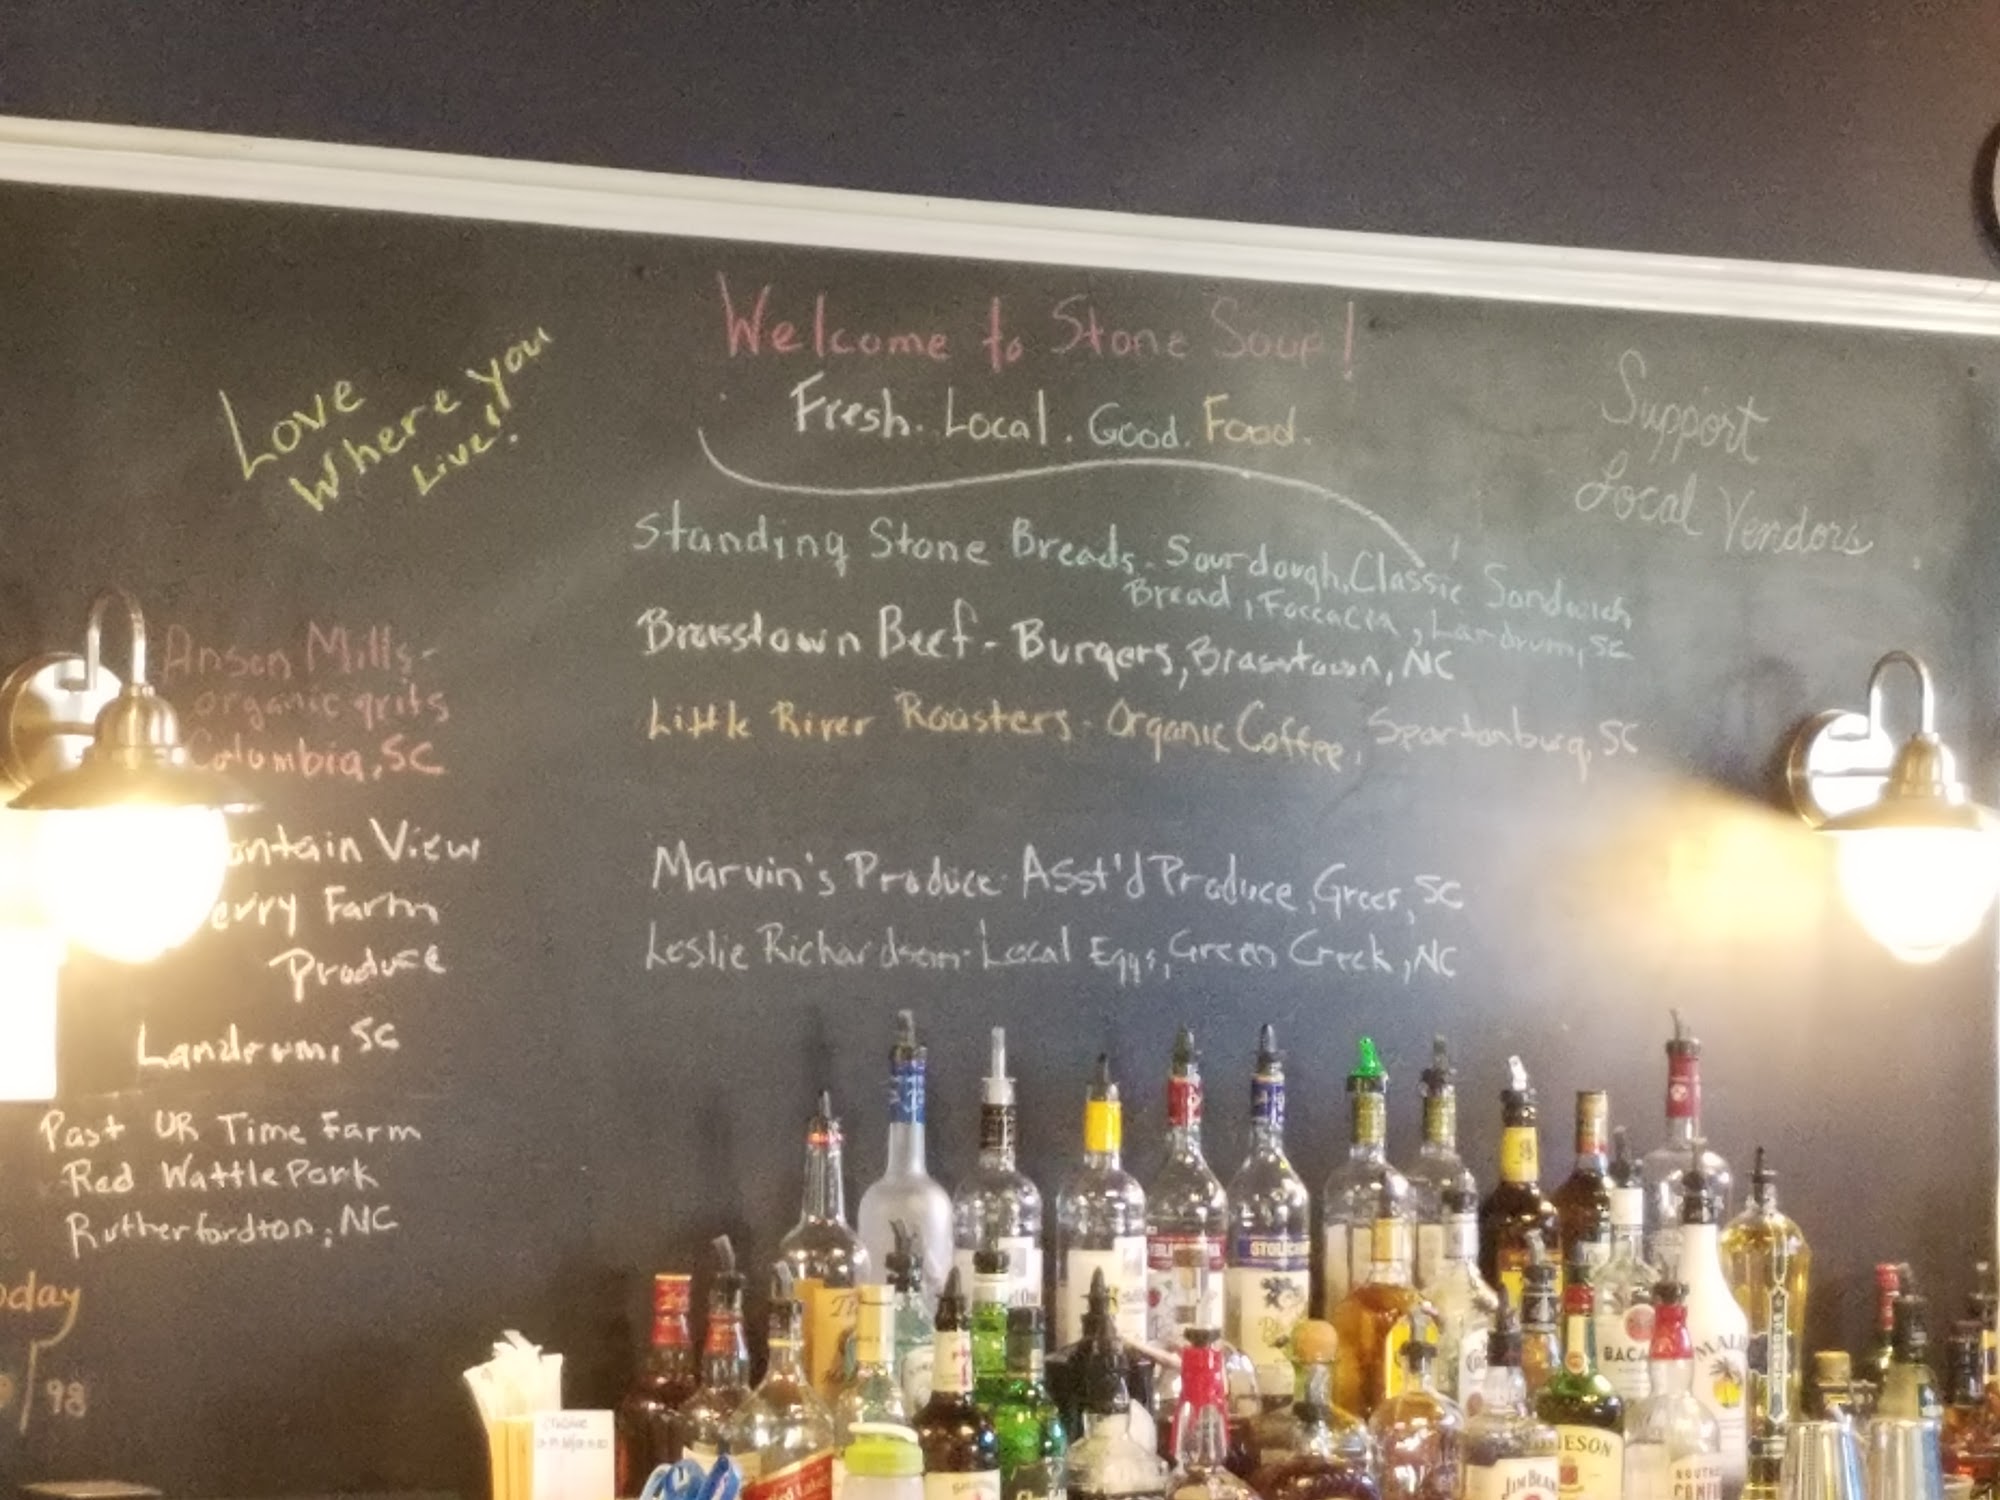 Welcome to Stone Soup!
Fresh. Local. Good. Food.
Love
Where you
Live!
Support
Local Vendors
Standing Stone Breads. Sourdough, Classic Sandwich
Bread, Foccacia, Landrum, SC
Brasstown Beef - Burgers, Brasstown, NC
Little River Roasters - Organic Coffee, Spartanburg, SC
Marvin's Produce - Asst'd Produce, Greer, SC
Leslie Richardson - Local Eggs, Green Creek, NC
Anson Mills -
organic grits
Columbia, SC
ontain View
erry Farm
Produce
Landrum, SC
Past UR Time Farm
Red Wattle Pork
Rutherfordton, NC
oday
/98
STOLICH
BACA
MALI
JIM BEAM
MESON